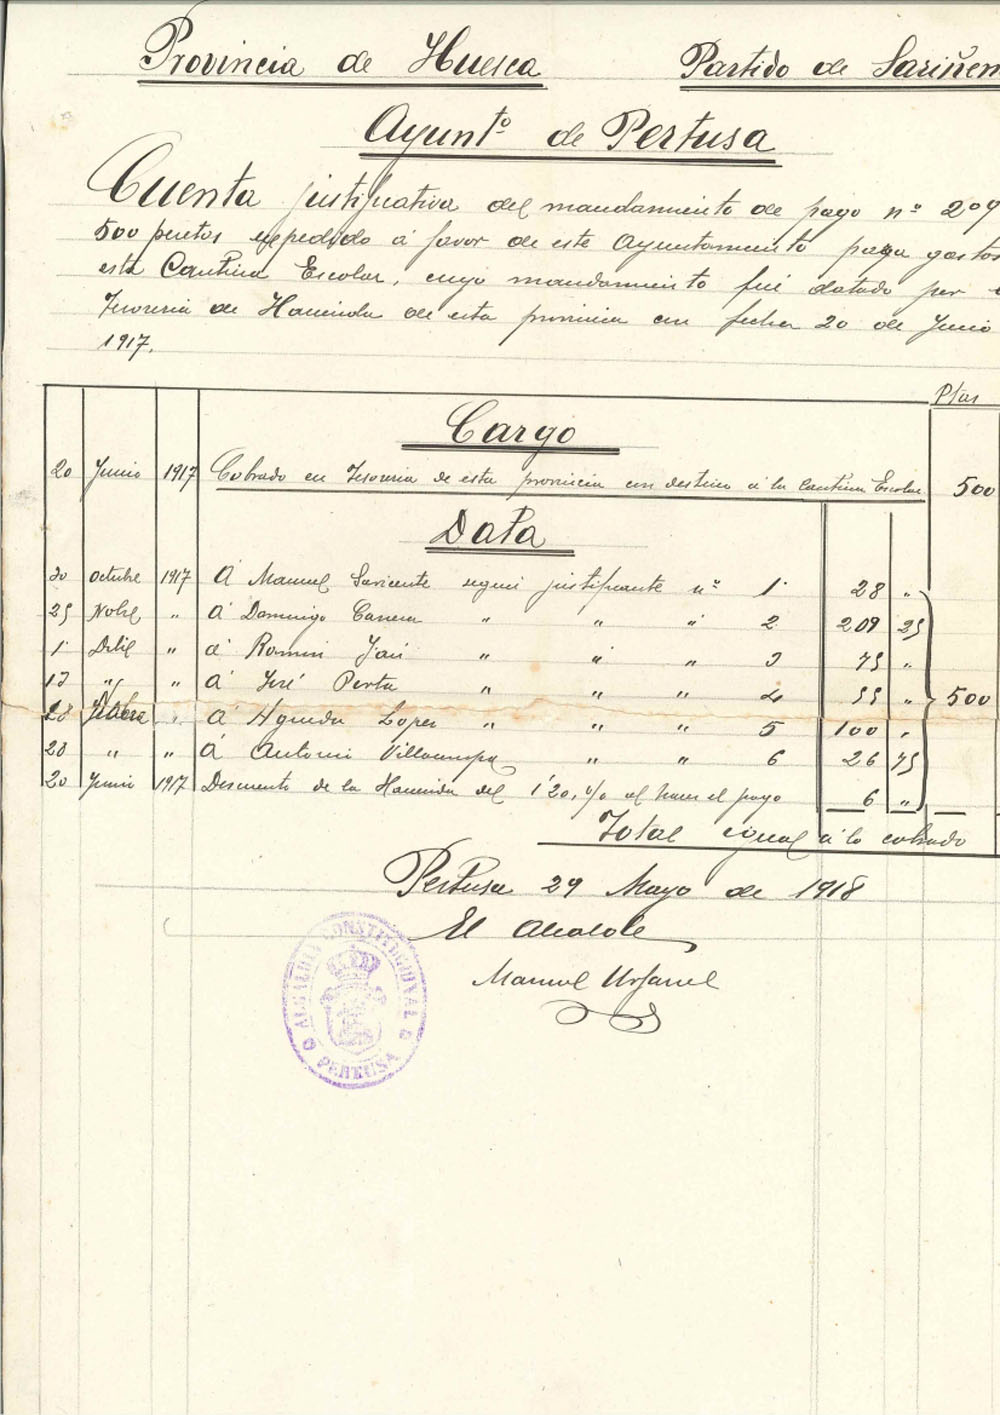 Provincia de Huesca
Partido de Sariñen
Ayuntº de Pertusa
Cuenta justificativa del mandamiento de pago nº 209
500 pesetas expedido á favor de este Ayuntamiento para gastos
esta Cantina Escolar, cuyo mandamiento fué datado por
Tesoreria de Hacienda de esta provincia con fecha 20 de Junio
1917.
Ptas
Cargo
20 Junio 1917 Cobrado en Tesoreria de esta provincia con destino á la Cantina Escolar 500
Data
20 Octubre 1917 Á Manuel según justificante nº 1 28 "
25 Nobre " Á Domingo " " " 2 209 25
1 " á Ramon " " " 3 75 "
13 " " Á José " " " 4 55 " 500
28 " Á Agueda Lopez " " " 5 100 "
28 " " Á Antonio Villacampa " " 6 26 75
20 Junio 1917 Descuento de la Hacienda del 1'20 % al hacer el pago 6 "
Total igual á lo cobrado
Pertusa 29 Mayo de 1918
El Alcalde
Manuel
ALCALDIA CONSTITUCIONAL
PERTUSA